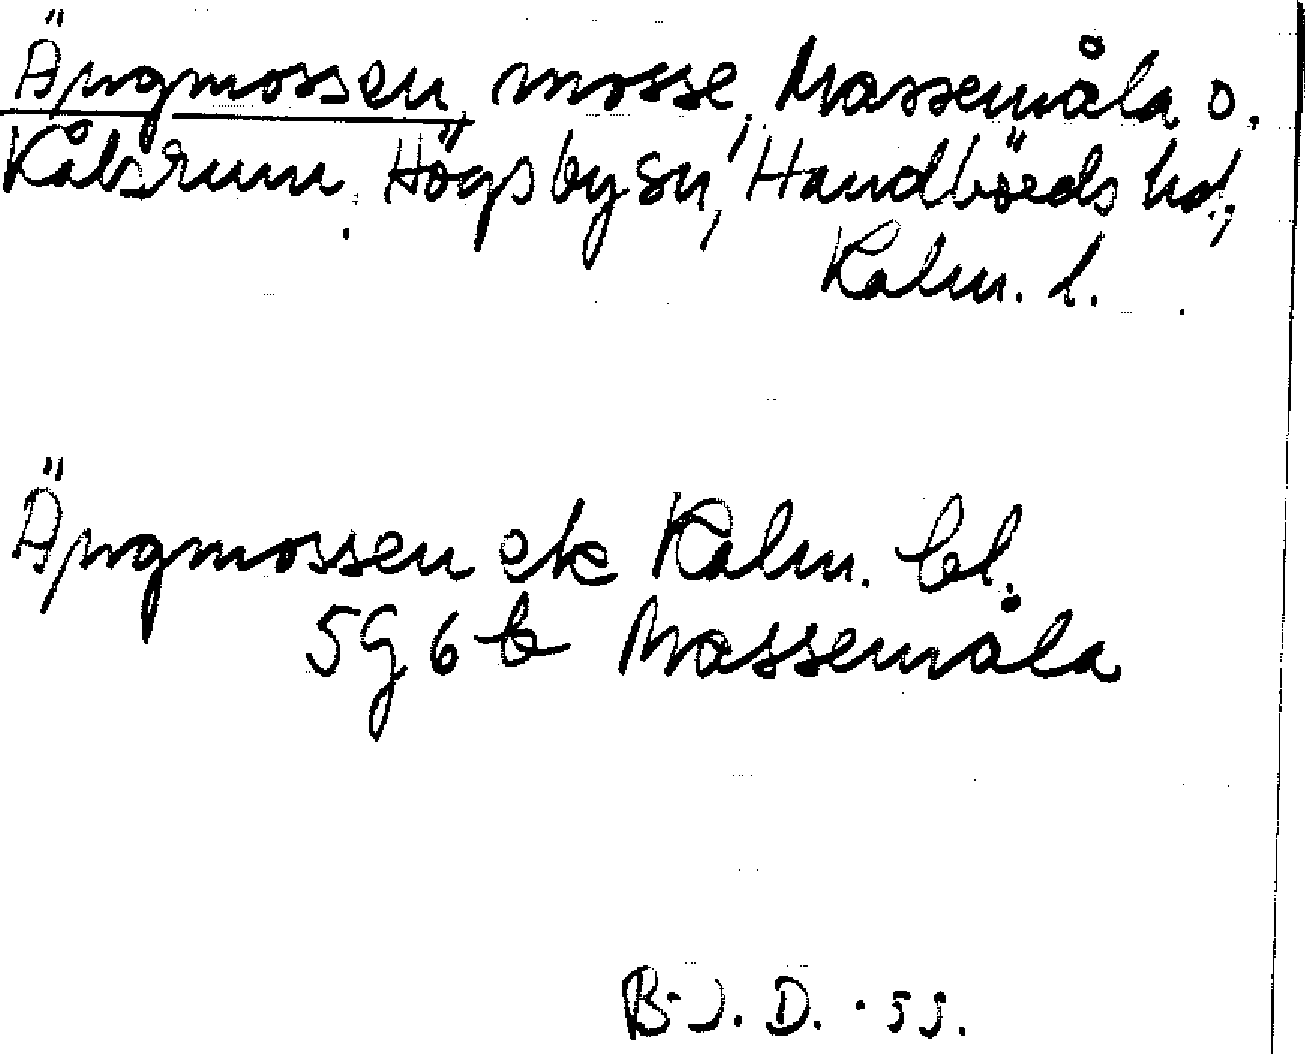 Ängmossen, mosse, Massemåla o.
Kålsrum, Högsby sn, Handbörds hd,
Kalm. l.
Ängmossen ek Kalm. bl.
5G6b Massemåla
B.J.D. 55.